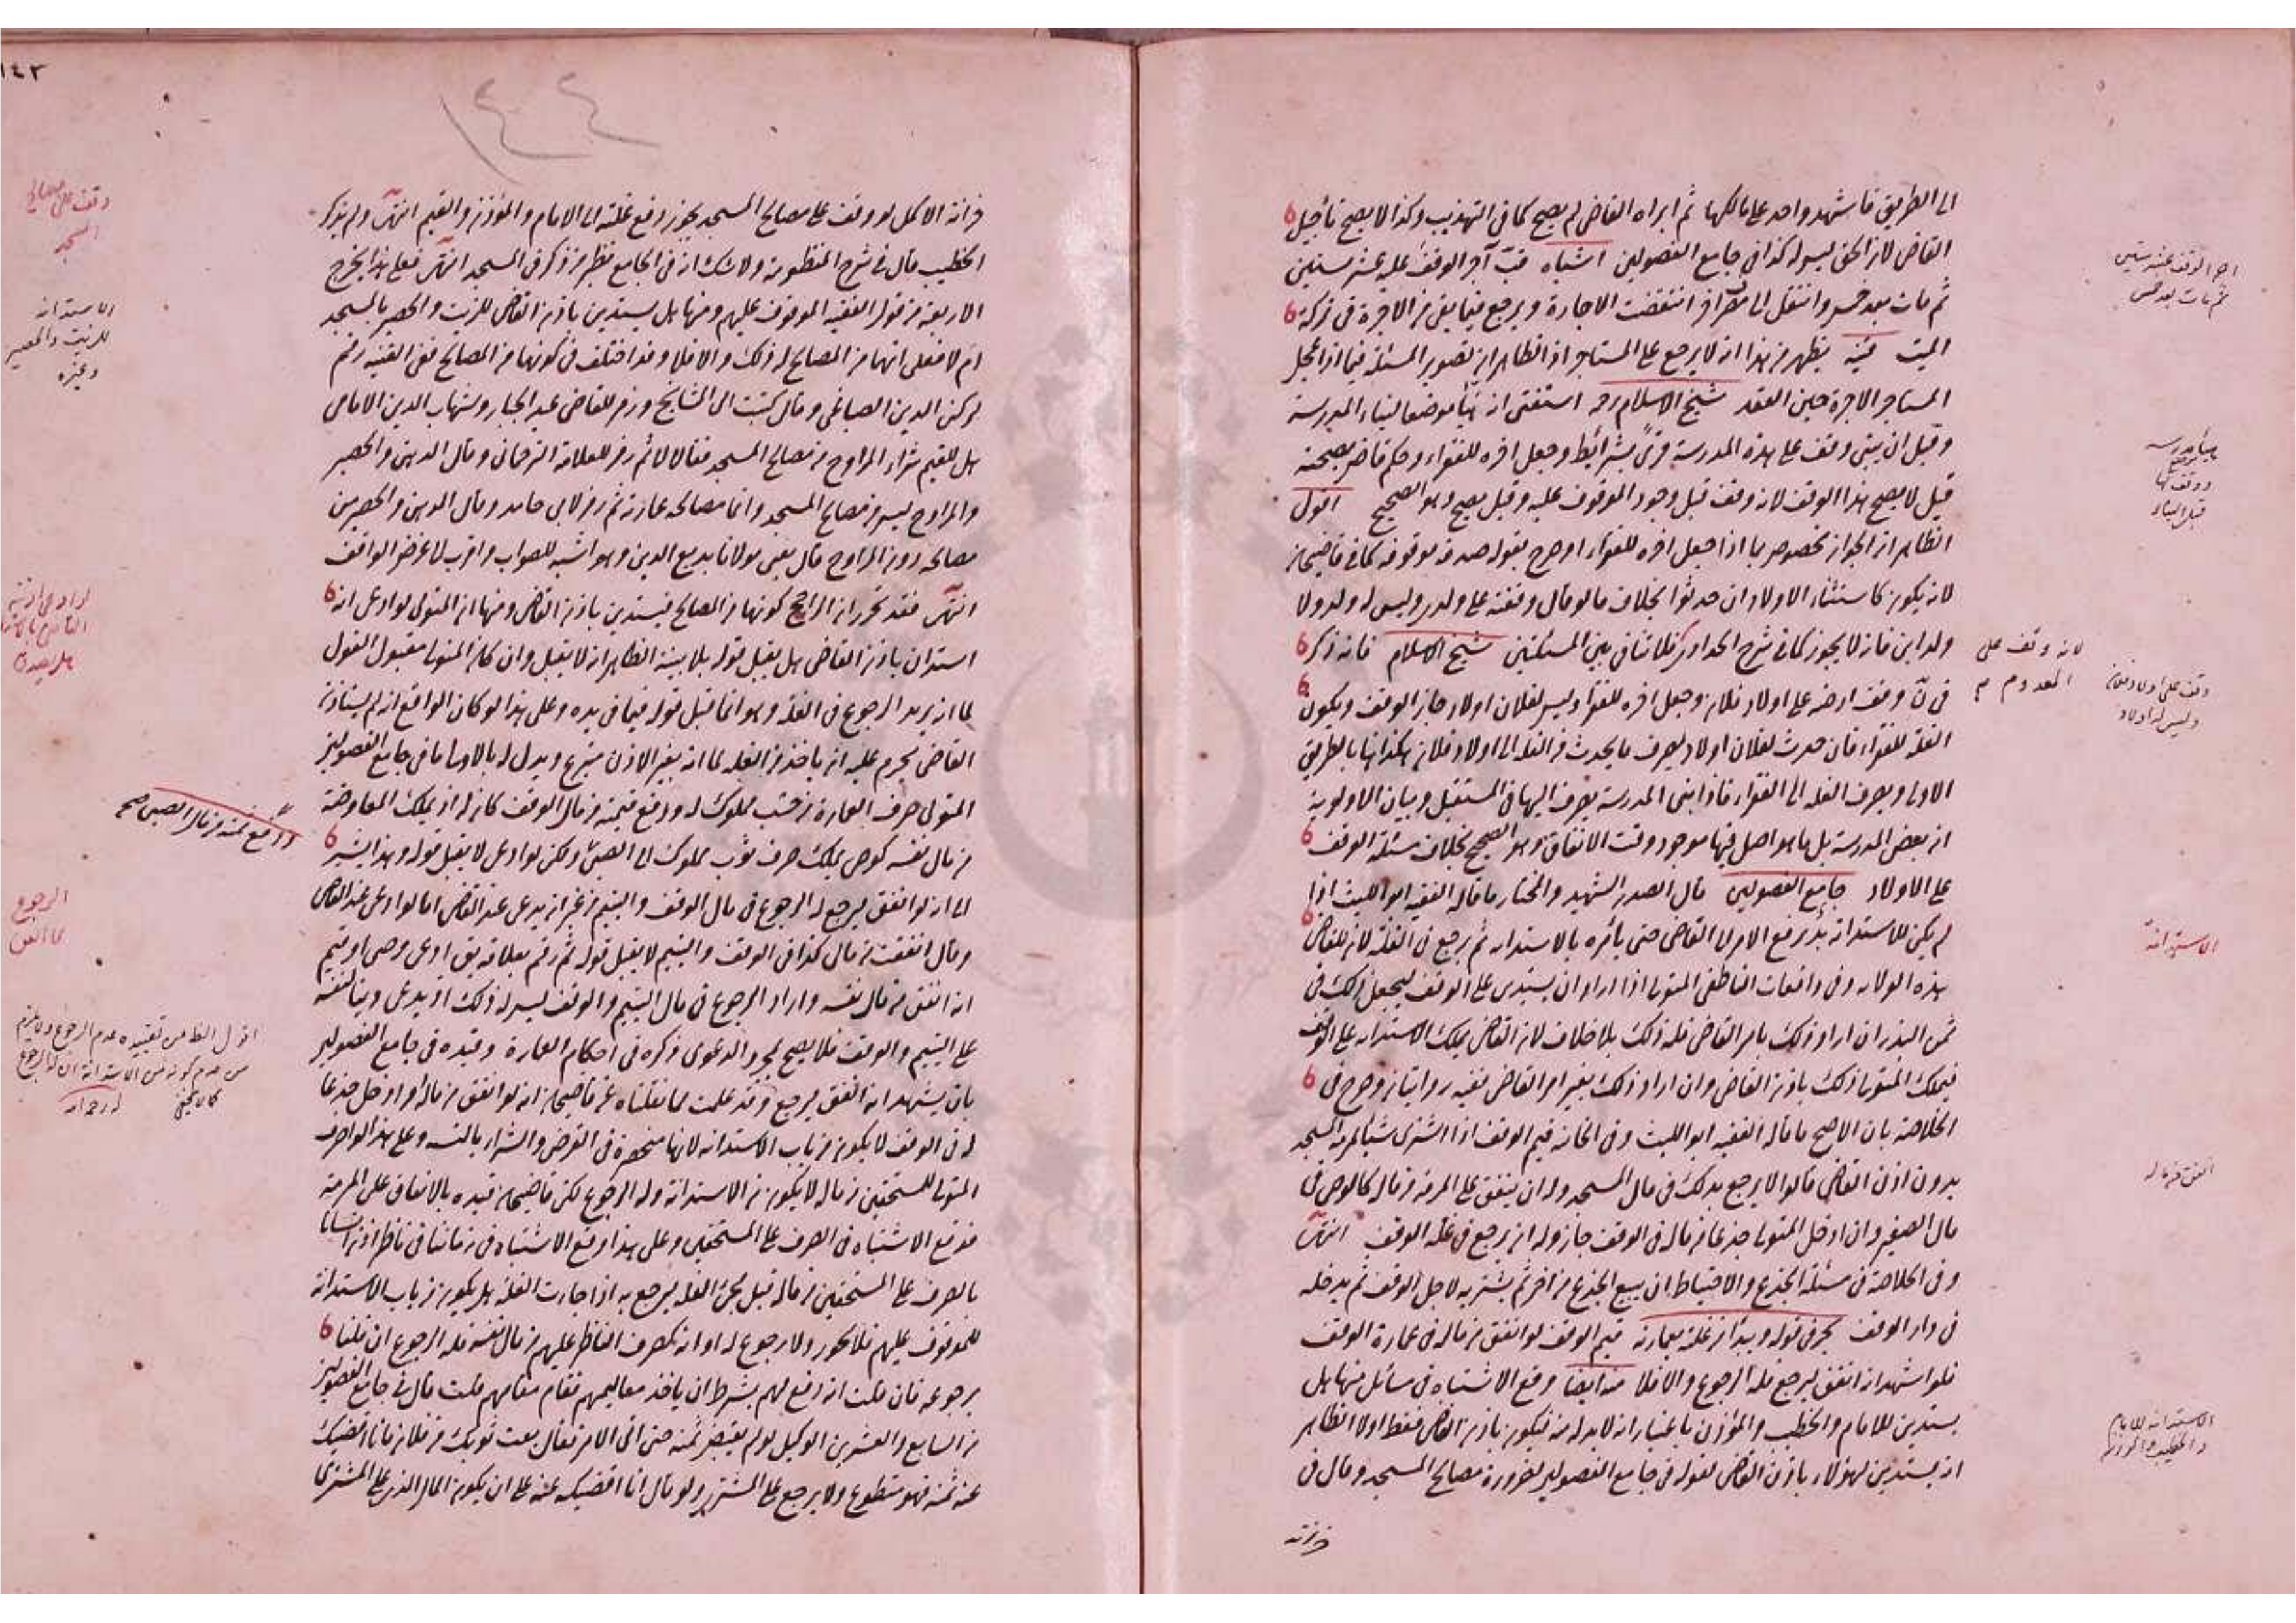 الى الطريق فاشهد واحد على مالكها ثم ابراه القاضي لم يصح كما في التهذيب وكذا لا يصح تأجيل
القاضي لان الحق ليس له كذا في جامع الفصولين اشباه آجر الوقف عليه عشر سنين
ثم مات بعد خمس وانتقل الى مصرف آخر انتقضت الاجارة ويرجع فيما بقي من الاجرة في تركة
الميت قنية يظهر من هذا انه لا يرجع على المستاجر اذ الظاهر ان تصوير المسئلة فيما اذا عجل
المستاجر الاجرة حين العقد شيخ الاسلام استفتى انه هيأ موضعا لبناء المدرسة
وقبل ان يبنى وقف على هذه المدرسة قرى بشرائط وجعل اخره للفقراء وحكم قاض بصحته
قيل لا يصح هذا الوقف لانه وقف قبل وجود الموقوف عليه وقيل يصح وهو الصحيح اقول
الظاهر ان الجواز مخصوص بما اذا جعل اخره للفقراء او صرح بقوله صدقة موقوفة كما في قاضيخان
لانه يكون كاستثناء الاولاد ان حدثوا بخلاف ما لو قال وقفته على ولدي وليس له ولد ولا
ولد ابن فانه لا يجوز كما في شرح الحدادي فلا تنافي بين المسئلتين شيخ الاسلام فانه ذكر
في وقف ارضه على اولاد فلان وجعل اخره للفقراء وليس لفلان اولاد جاز الوقف ويكون
الغلة للفقراء فان حدث لفلان اولاد يصرف ما يحدث من الغلة الى اولاد فلان هكذا هنا بالطريق
الاولى ويصرف الغلة الى الفقراء فاذا بنى المدرسة يصرف اليها في المستقبل وبيان الاولوية
ان بعض المدرسة بل ما هو اصل فيها موجود وقت الانفاق وهو الصحيح بخلاف مسئلة الوقف
على الاولاد جامع الفصولين قال الصدر الشهيد والمختار ما قاله الفقيه ابو الليث اذا
لم يكن للاستدانة بد يرفع الامر الى القاضي حتى يأمره بالاستدانة ثم يرجع في الغلة لان للقاضي
هذه الولاية وفي واقعات الناطفي المتولي اذا اراد ان يستدين على الوقف ليجعل ذلك في
ثمن البذر ان اراد ذلك بامر القاضي فله ذلك بلا خلاف لان القاضي يملك الاستدانة على الوقف
فيملك المتولي ذلك باذن القاضي وان اراد ذلك بغير امر القاضي ففيه روايتان وصرح في
الخلاصة بان الاصح ما قاله الفقيه ابو الليث وفي الخانية قيم الوقف اذا اشترى شيئا لمرمة المسجد
بدون اذن القاضي قالوا لا يرجع بذلك في مال المسجد وله ان ينفق على المرمة من ماله كالوصي في
مال الصغير وان ادخل المتولي جذعا من ماله في الوقف جاز وله ان يرجع في غلة الوقف انتهى
وفي الخلاصة في مسئلة الجذع والاحتياط ان يبيع الجذع من آخر ثم يشتريه لاجل الوقف ثم يدخله
في دار الوقف بحر في قوله ويبدأ من غلته بعمارته قيم الوقف لو انفق من ماله في عمارة الوقف
فلو اشهد انه انفق ليرجع فله الرجوع والا فلا منه ايضا وقع الاشتباه في مسائل منها هل
يستدين للامام والخطيب والمؤذن باعتبار انه لا بد له منه فيكون باذن القاضي فقط او لا الظاهر
انه يستدين لهؤلاء باذن القاضي لقوله في جامع الفصولين لضرورة مصالح المسجد وقال في
خزانة
اجر الوقف عشر سنين
ثم مات بعد خمس
لانه وقف على
المعدوم م
وقف على اولاد فلان
وليس له اولاد
الاستدانة
انفق من ماله
الاستدانة للامام
والخطيب والمؤذن
١٤٣
١٤٤
خزانة الاكمل لو وقف على مصالح المسجد يجوز دفع غلته الى الامام والمؤذن والقيم انتهى ولم يذكر
الخطيب قال في شرح المنظومة ولا شك انه في الجامع نظير من ذكر في المسجد انتهى فعلى هذا يخرج
الاربعة من قول الفقيه الموقوف عليهم ومنها هل يستدين باذن القاضي للزيت والحصر بالمسجد
ام لا فعلى انهما من المصالح له ذلك والا فلا وقد اختلف في كونهما من المصالح ففي القنية رقم
لركن الدين الصباغي وقال كتبت الى المشايخ ورمز للقاضي عبد الجبار وشهاب الدين الامامي
هل للقيم شراء المراوح من مصالح المسجد فقالا لا ثم رمز للعلامة الترجماني وقال الدهن والحصير
والمراوح ليس من مصالح المسجد وانما مصالحه عمارته ثم رمز لابي حامد وقال الدهن والحصير من
مصالحه دون المراوح قال يعني مولانا بديع الدين وهو اشبه للصواب واقرب لما غرض الواقف
انتهى فقد تحرر ان الراجح كونهما من المصالح فيستدين باذن القاضي ومنها ان المتولي لو ادعى انه
استدان باذن القاضي هل يقبل قوله بلا بينة الظاهر انه لا يقبل وان كان المتولي مقبول القول
لما انه يريد الرجوع في الغلة وهو انما قبل قوله فيما في يده وعلى هذا لو كان الواقع انه لم يستاذن
القاضي يحرم عليه ان ياخذ من الغلة لما انه بغير الاذن متبرع ويدل له بالاولى ما في جامع الفصولين
المتولي صرف العمارة من خشب مملوك له ودفع قيمته من مال الوقف كان له اذ يملك المعاوضة
من مال نفسه كوصي يملك صرف ثوب مملوك الى الصبي ولكن لو ادعى لا يقبل قوله وهذا يشير
الى انه لو انفق ليرجع له الرجوع في مال الوقف واليتيم من غير ان يدعي عند القاضي اما لو ادعى عند القاضي
وقال انفقت من مالي كذا في الوقف واليتيم لا يقبل قوله ثم رقم بعلامة بق ادعى وصي او قيم
انه انفق من مال نفسه واراد الرجوع في مال اليتيم والوقف ليس له ذلك اذ يدعي دينا لنفسه
على اليتيم والوقف فلا يصح بمجرد الدعوى ذكره في احكام العمارة وقيده في جامع الفصولين
بان يشهد انه انفق ليرجع وقد علمت مما نقلناه عن قاضيخان انه لو انفق من ماله او ادخل جذعا
له في الوقف لا يكون من باب الاستدانة لانها منحصرة في القرض والشراء بالنسيئة وعلى هذا لو صرف
المتولي للمستحقين من ماله لا يكون من الاستدانة وله الرجوع لكن قاضيخان قيده بالانفاق على المرمة
فوقع الاشتباه في الصرف على المستحقين وعلى هذا وقع الاشتباه في زماننا في ناظر اذن انسانا
بالصرف على المستحقين من ماله قبل مجئ الغلة ليرجع به اذا جاءت الغلة هل يكون من باب الاستدانة
للموقوف عليهم فلا يجوز ولا رجوع له او انه كصرف الناظر عليهم من مال نفسه فله الرجوع ان قلنا
برجوعه فان قلت انه دفع لهم بشرط ان ياخذ معاليمهم فقام مقامهم قلت قال في جامع الفصولين
من السابع والعشرين الوكيل لو لم يقبض ثمنه حتى اتى الآمر فقال بعت ثوبك من فلان فانا اقضيك
عنه ثمنه فهو متطوع ولا يرجع على المشتري ولو قال انا اقضيكه عنه على ان يكون المال الذي على المشتري
وقف على مصالح
المسجد
الاستدانة
للزيت والحصير
وغيره
لو ادعى انه
هل يصدق
ودفع ثمنه من مال الصبي صح
الرجوع